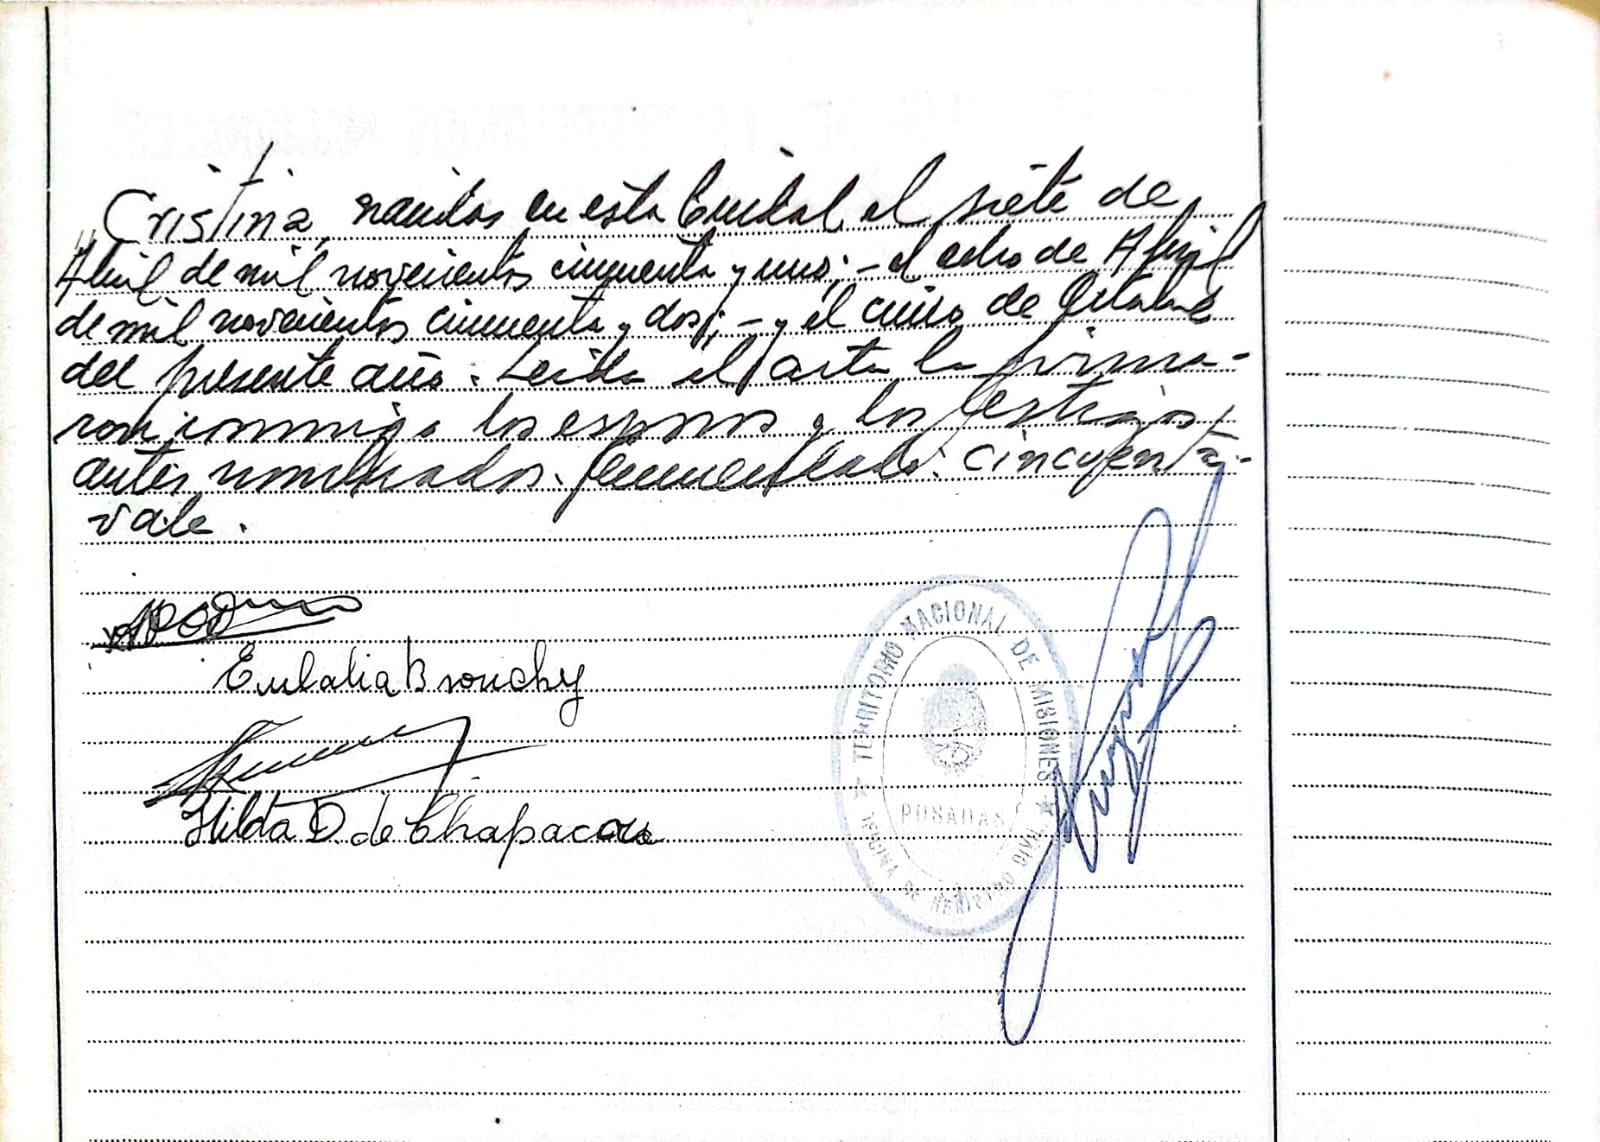 Cristina, nacidas en esta Ciudad, el siete de
Abril de mil novecientos cincuenta y uno; - el ocho de Abril
de mil novecientos cincuenta y dos; - y el cinco de Octubre
del presente año. Leida el acta la firma-
ron conmigo los esposos y los testigos
antes nombrados. Enmendado: cincuenta -
vale.
Eulalia Bronchy
Hilda D. de Chapacou
TERRITORIO NACIONAL DE MISIONES
POSADAS
DE REGISTRO CIVIL